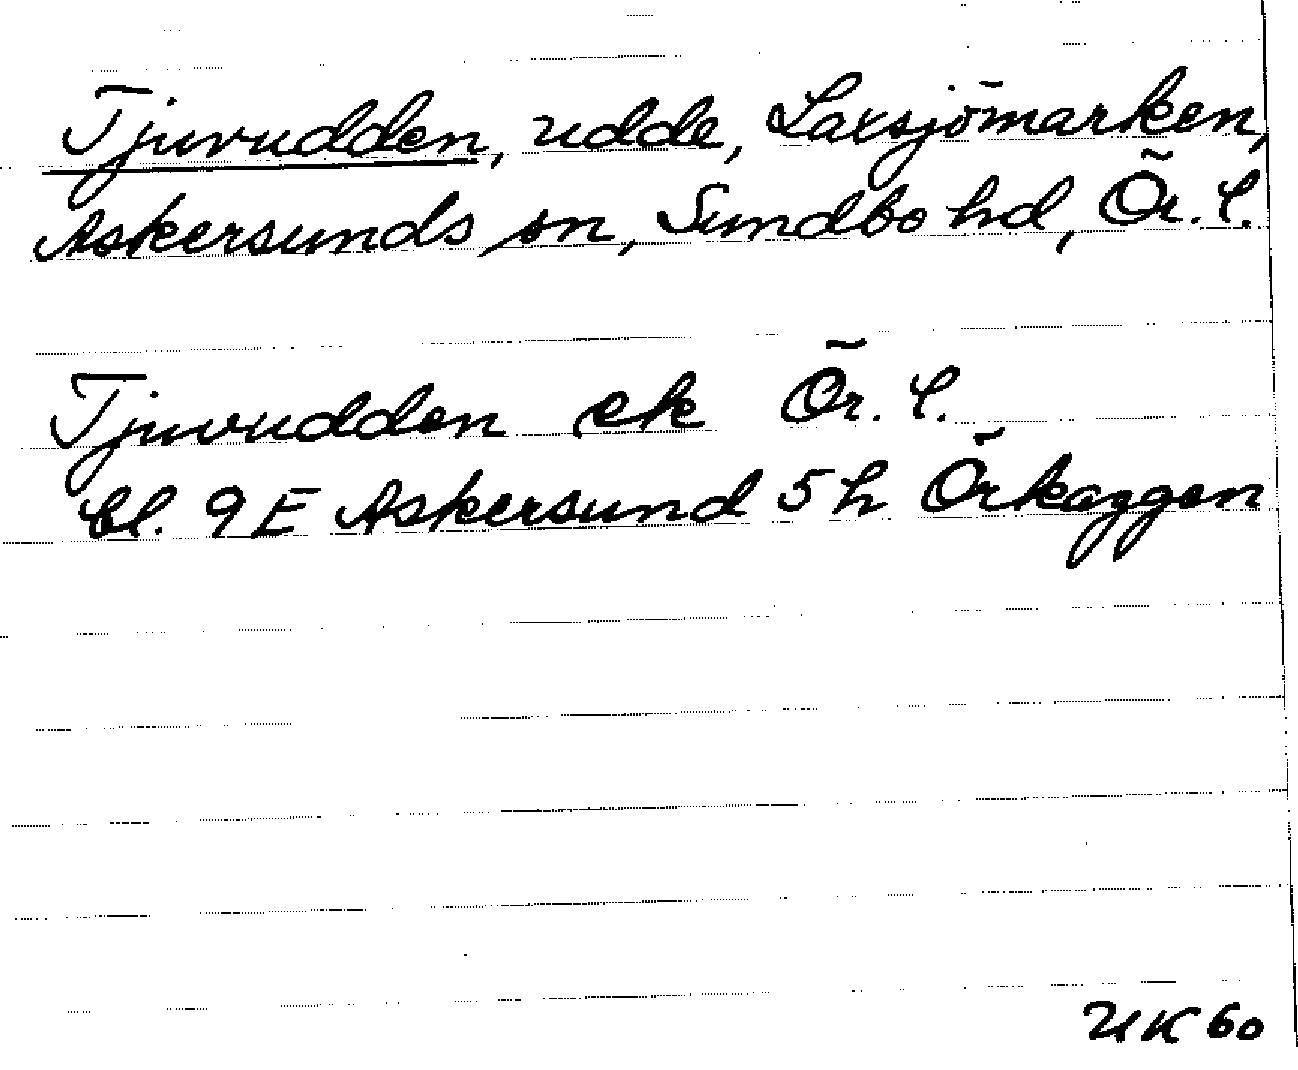 Tjuvudden, udde, Laxsjömarken,
Askersunds sn, Sundbo hd, Ör. l.
Tjuvudden ek Ör. l.
bl. 9E Askersund 5h Örkaggen
UK 60